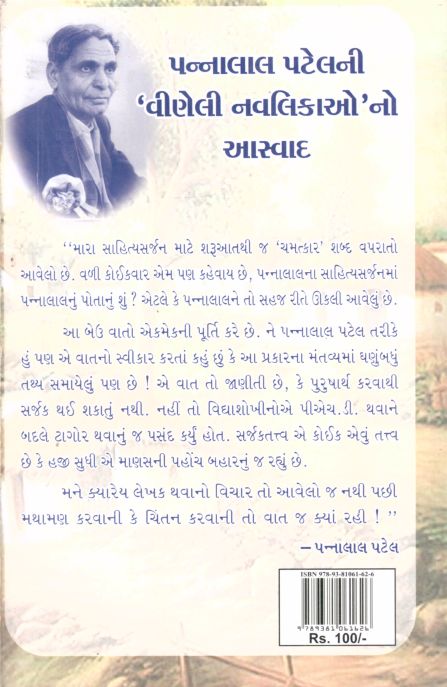 પન્નાલાલ પટેલની
‘વીણેલી નવલિકાઓ’નો
આસ્વાદ
‘‘મારા સાહિત્યસર્જન માટે શરૂઆતથી જ ‘ચમત્કાર’ શબ્દ વપરાતો
આવેલો છે. વળી કોઈકવાર એમ પણ કહેવાય છે, પન્નાલાલના સાહિત્યસર્જનમાં
પન્નાલાલનું પોતાનું શું ? એટલે કે પન્નાલાલને તો સહજ રીતે ઊકલી આવેલું છે.
આ બેઉ વાતો એકમેકની પૂર્તિ કરે છે. ને પન્નાલાલ પટેલ તરીકે
હું પણ એ વાતનો સ્વીકાર કરતાં કહું છું કે આ પ્રકારના મંતવ્યમાં ઘણુંબધું
તથ્ય સમાયેલું પણ છે ! એ વાત તો જાણીતી છે, કે પુરુષાર્થ કરવાથી
સર્જક થઈ શકાતું નથી. નહીં તો વિદ્યાશોખીનોએ પીએચ.ડી. થવાને
બદલે ટાગોર થવાનું જ પસંદ કર્યું હોત. સર્જકતત્ત્વ એ કોઈક એવું તત્ત્વ
છે કે હજી સુધી એ માણસની પહોંચ બહારનું જ રહ્યું છે.
મને ક્યારેય લેખક થવાનો વિચાર તો આવેલો જ નથી પછી
મથામણ કરવાની કે ચિંતન કરવાની તો વાત જ ક્યાં રહી ! ’’
– પન્નાલાલ પટેલ
ISBN 978-93-81061-62-6
9 789381 061626
Rs. 100/-